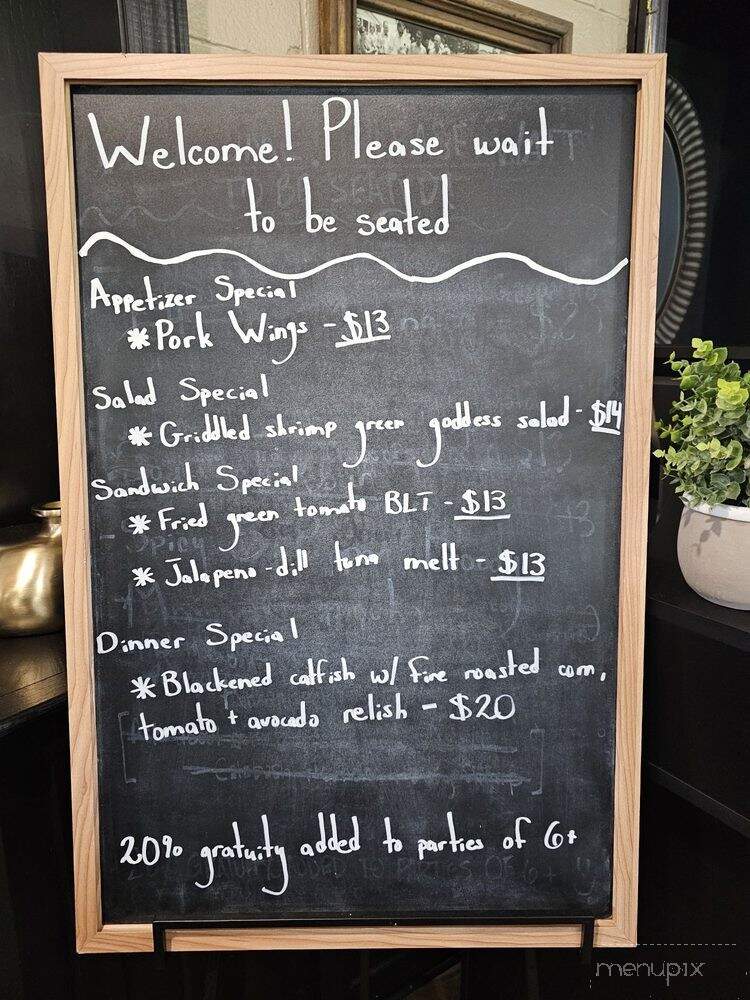 Welcome! Please wait
to be seated
Appetizer Special
* Pork Wings - $13
Salad Special
* Griddled shrimp green goddess salad - $14
Sandwich Special
* Fried green tomato BLT - $13
* Jalapeno-dill tuna melt - $13
Dinner Special
* Blackened catfish w/ fire roasted corn,
tomato + avocado relish - $20
20% gratuity added to parties of 6+
menupix